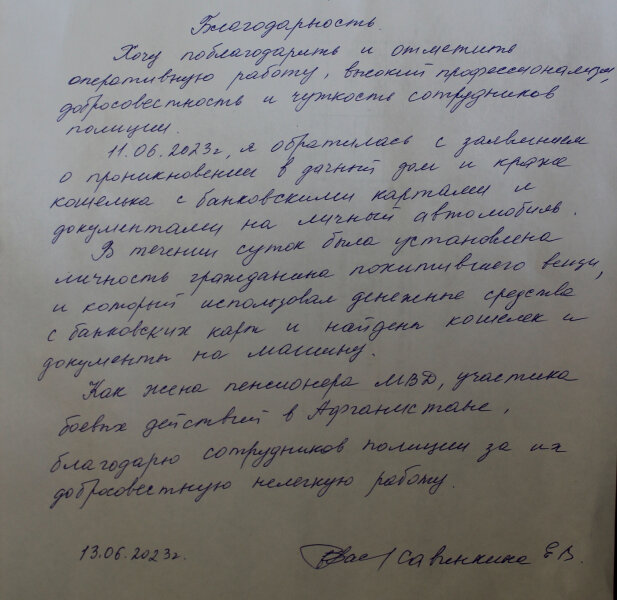 Благодарность.
Хочу поблагодарить и отметить
оперативную работу, высокий профессионализм,
добросовестность и чуткость сотрудников
полиции.
11.06.2023г, я обратилась с заявлением
о проникновении в дачный дом и краже
кошелька с банковскими картами и
документами на личный автомобиль.
В течении суток была установлена
личность гражданина похитившего вещи,
и который использовал денежные средства
с банковских карт и найдены кошелек и
документы на машину.
Как жена пенсионера МВД, участика
боевых действий в Афганистане,
благодарю сотрудников полиции за их
добросовестную нелегкую работу.
13.06.2023г. Савинкина Е.В.